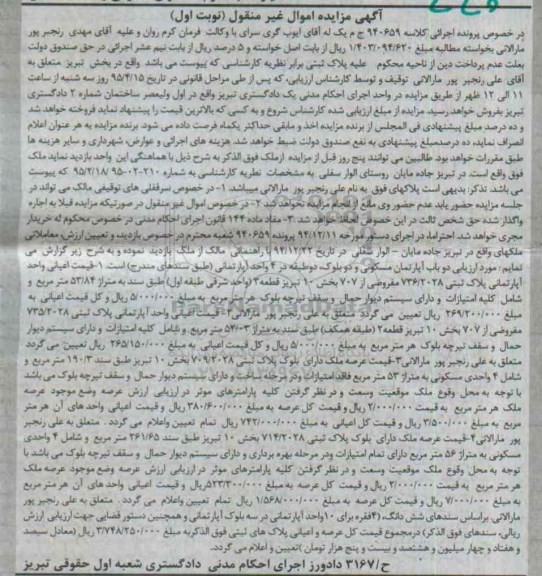 آگهی مزایده اموال غیر منقول (نوبت اول)
در خصوص پرونده اجرائی کلاسه ۹۴۰۶۵۹ ج م یک له آقای ایوب گری سرای با وکالت فرمان کرم روان و علیه آقای مهدی رنجبر پور
مارالانی بخواسته مطالبه مبلغ ۱/۴۰۳/۰۹۴/۶۲۰ ریال از بابت اصل خواسته و ۵ درصد ریال از بابت نیم عشر اجرائی در حق صندوق دولت
بعلت عدم پرداخت دین از ناحیه محکوم علیه پلاک ثبتی برابر نظریه کارشناسی که پیوست می باشد واقع در بخش تبریز متعلق به
آقای علی رنجبر پور مارالانی توقیف و توسط کارشناس ارزیابی، که پس از طی مراحل قانونی در تاریخ ۹۵/۴/۱۵ روز سه شنبه از ساعت
۱۱ الی ۱۲ ظهر از طریق مزایده در واحد اجرای احکام مدنی یک دادگستری تبریز واقع در اول ولیعصر ساختمان شماره ۲ دادگستری
تبریز بفروش خواهد رسید. مزایده از مبلغ ارزیابی شده کارشناس شروع و به کسی که بالاترین قیمت را پیشنهاد نماید فروخته خواهد شد
و ده درصد مبلغ پیشنهادی فی المجلس از برنده مزایده اخذ و مابقی حداکثر یکماه فرصت داده می شود. برنده مزایده به هر عنوان اعلام
انصراف نماید، ده درصد مبلغ پیشنهادی به نفع صندوق دولت ضبط خواهد شد. هزینه های اجرائی و عوارض، شهرداری و سایر هزینه ها
طبق مقررات خواهد بود. طالبین می توانند پنج روز قبل از مزایده از ملک فوق الذکر به شرح ذیل با هماهنگی این واحد بازدید نماید ملک
فوق واقع است. در تبریز جاده مایان روستای الوار سفلی به مشخصات نظریه کارشناسی به شماره ۲۱۰-۰۲-۹۵ ۹۵/۲/۱۸ که پیوست
می باشد. تذکر: بدیهی است پلاکهای فوق به نام علی رنجبر پور مارالانی میباشد. ۱- در خصوص سرقفلی های توقیفی مالک می تواند در
جلسه مزایده حضور یابد عدم حضور وی مانع از انجام مزایده نخواهد شد ۲- در خصوص اموال غیر منقول در صورتیکه مزایده قبلا به اجاره
واگذار شده حق شخص ثالث در این خصوص لحاظ خواهد شد ۳- مفاد ماده ۱۴۴ قانون اجرای احکام مدنی در خصوص محکوم له خریدار
مجری خواهد شد. احتراما، در اجرای دستور مورخه ۹۴/۱۲/۱۱ پرونده ۹۴۰۶۵۹ شعبه محترم در خصوص بازدید و تعیین ارزش، معاملاتی
ملکهای واقع در تبریز جاده مایان – الوار سفلی در تاریخ ۹۴/۱۲/۲۲ با راهنمائی مالک از ملک بازدید نموده و به شرح زیر گزارش می
نمایم : مورد ارزیابی دو باب آپارتمان مسکونی و دو بلوک دوطبقه در ۴ واحد آپارتمانی (طبق سندهای مندرج) است ۱-قیمت اعیانی واحد
آپارتمانی پلاک ثبتی ۷۳۶/۲۰۲۸ مفروضی از ۷۰۷ بخش ۱۰ تبریز قطعه۳ (واحد شرقی طبقه اول) طبق سند به متراژ ۵۳/۸۴ متر مربع و
شامل کلیه امتیازات و دارای سیستم دیوار حمال و سقف تیرچه بلوک هر متر مربع به مبلغ ۵/۰۰۰/۰۰۰ ریال و کل قیمت اعیانی به
مبلغ ۲۶۹/۲۰۰/۰۰۰ ریال تعیین می گردد متعلق به علی رنجبر پور مارالانی ۲-قیمت اعیانی واحد آپارتمانی پلاک ثبتی ۷۳۵/۲۰۲۸
مفروضی از ۷۰۷ بخش ۱۰ تبریز قطعه۲ (طبقه همکف) طبق سند به متراژ ۵۳/۰۳ متر مربع و شامل کلیه امتیازات و دارای سیستم دیوار
حمال و سقف تیرچه بلوک هر متر مربع به مبلغ ۵/۰۰۰/۰۰۰ ریال و کل قیمت اعیانی به مبلغ ۲۶۵/۱۵۰/۰۰۰ ریال تعیین می گردد
متعلق به علی رنجبر پور مارالانی ۳-قیمت عرصه ملک دارای بلوک پلاک ثبتی ۷۰۹/۲۰۲۸ بخش ۱۰ تبریز طبق سند ۱۹۰/۳ متر مربع و
شامل ۴ واحدی مسکونی به متراژ ۵۳ متر مربع فاقد امتیازات و در مرحله ساخت و دارای سیستم دیوار حمال و سقف تیرچه بلوک می باشد
با توجه به محل وقوع ملک موقعیت وسعت و در نظر گرفتن کلیه پارامترهای موثر در ارزیابی ارزش عرصه وضع موجود عرصه
ملک هر متر مربع به قیمت ۲/۰۰۰/۰۰۰ ریال و قیمت کل عرصه به مبلغ ۳۸۰/۶۰۰/۰۰۰ ریال و قیمت اعیانی واحد های آن هر متر
مربع به مبلغ ۳/۵۰۰/۰۰۰ ریال و قیمت کل اعیانی به مبلغ ۷۴۲/۰۰۰/۰۰۰ ریال تمام تعیین و اعلام می گردد . متعلق به علی رنجبر
پور مارالانی ۴-قیمت عرصه ملک دارای بلوک پلاک ثبتی ۷۱۴/۲۰۲۸ بخش ۱۰ تبریز طبق سند ۲۶۱/۶۵ متر مربع و شامل ۴ واحدی
مسکونی به متراژ ۵۶ متر مربع دارای تمام امتیازات و در مرحله بهره برداری و دارای سیستم دیوار حمال و سقف تیرچه بلوک می باشد با
توجه به محل وقوع ملک موقعیت وسعت و در نظر گرفتن کلیه پارامترهای موثر در ارزیابی ارزش عرصه وضع موجود عرصه ملک
هر متر مربع به قیمت ۲/۰۰۰/۰۰۰ ریال و قیمت کل عرصه به مبلغ ۵۲۳/۳۰۰/۰۰۰ ریال و قیمت اعیانی واحد های آن هر متر مربع
به مبلغ ۷/۰۰۰/۰۰۰ ریال و قیمت کل عرصه به مبلغ ۱/۵۶۸/۰۰۰/۰۰۰ ریال تمام تعیین واعلام می گردد . متعلق به علی رنجبر پور
مارالانی. براساس سندهای شش دانگ، (۴فقره برای ۱۰واحد آپارتمانی در سه بلوک آپارتمانی و همچنین دستور قضایی جهت ارزیابی ارزش
ریالی، سندهای فوق الذکر) در مجموع قیمت کل عرصه و اعیانی پلاک های ثبتی فوق الذکر به مبلغ ۳/۷۴۸/۲۵۰/۰۰۰ ریال (معادل سیصد
و هفتاد و چهار میلیون و هشتصد و بیست و پنج هزار تومان )تعیین و اعلام می گردد.
ح/۳۱۶۷ دادورز اجرای احکام مدنی دادگستری شعبه اول حقوقی تبریز